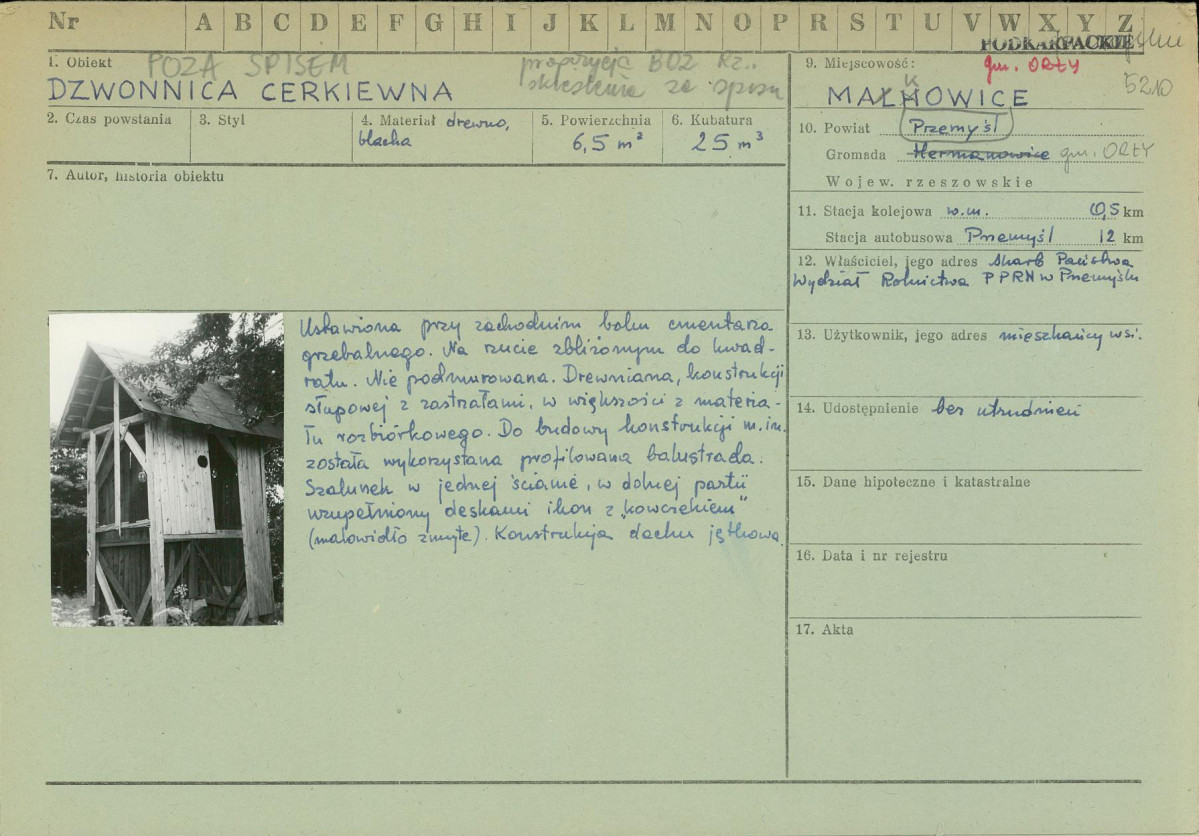 Nr A B C D E F G H I J K L M N O P R S T U V W X Y Z
PODKARPACKIE
1. Obiekt POZA SPISEM propozycja BOZ Rz..
skreślenia ze spisu
DZWONNICA CERKIEWNA
2. Czas powstania
3. Styl
4. Materiał drewno,
blacha
5. Powierzchnia
6,5 m²
6. Kubatura
25 m³
7. Autor, historia obiektu
Ustawiona przy zachodnim boku cmentarza
grzebalnego. Na rzucie zbliżonym do kwad-
ratu. Nie podmurowana. Drewniana, konstrukcji
słupowej z zastrzałami, w większości z materia-
łu rozbiórkowego. Do budowy konstrukcji m.in.
została wykorzystana profilowana balustrada.
Szalunek w jednej ścianie, w dolnej partii
uzupełniony deskami ikon z „kowczekiem"
(malowidło zmyte). Konstrukcja dachu jętkowa.
9. Miejscowość: gm. ORŁY
5210
MALHOWICE
K
10. Powiat Przemyśl
Gromada Hermanowice gm. ORŁY
Wojew. rzeszowskie
11. Stacja kolejowa w.m. 0,5 km
Stacja autobusowa Przemyśl 12 km
12. Właściciel, jego adres Skarb Państwa
Wydział Rolnictwa PPRN w Przemyślu
13. Użytkownik, jego adres mieszkańcy wsi.
14. Udostępnienie bez utrudnień
15. Dane hipoteczne i katastralne
16. Data i nr rejestru
17. Akta